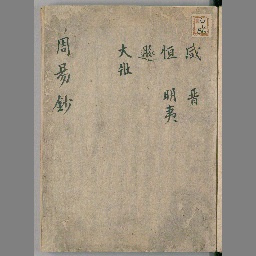 咸 晋
恒 明夷
遯
大壯
周易鈔